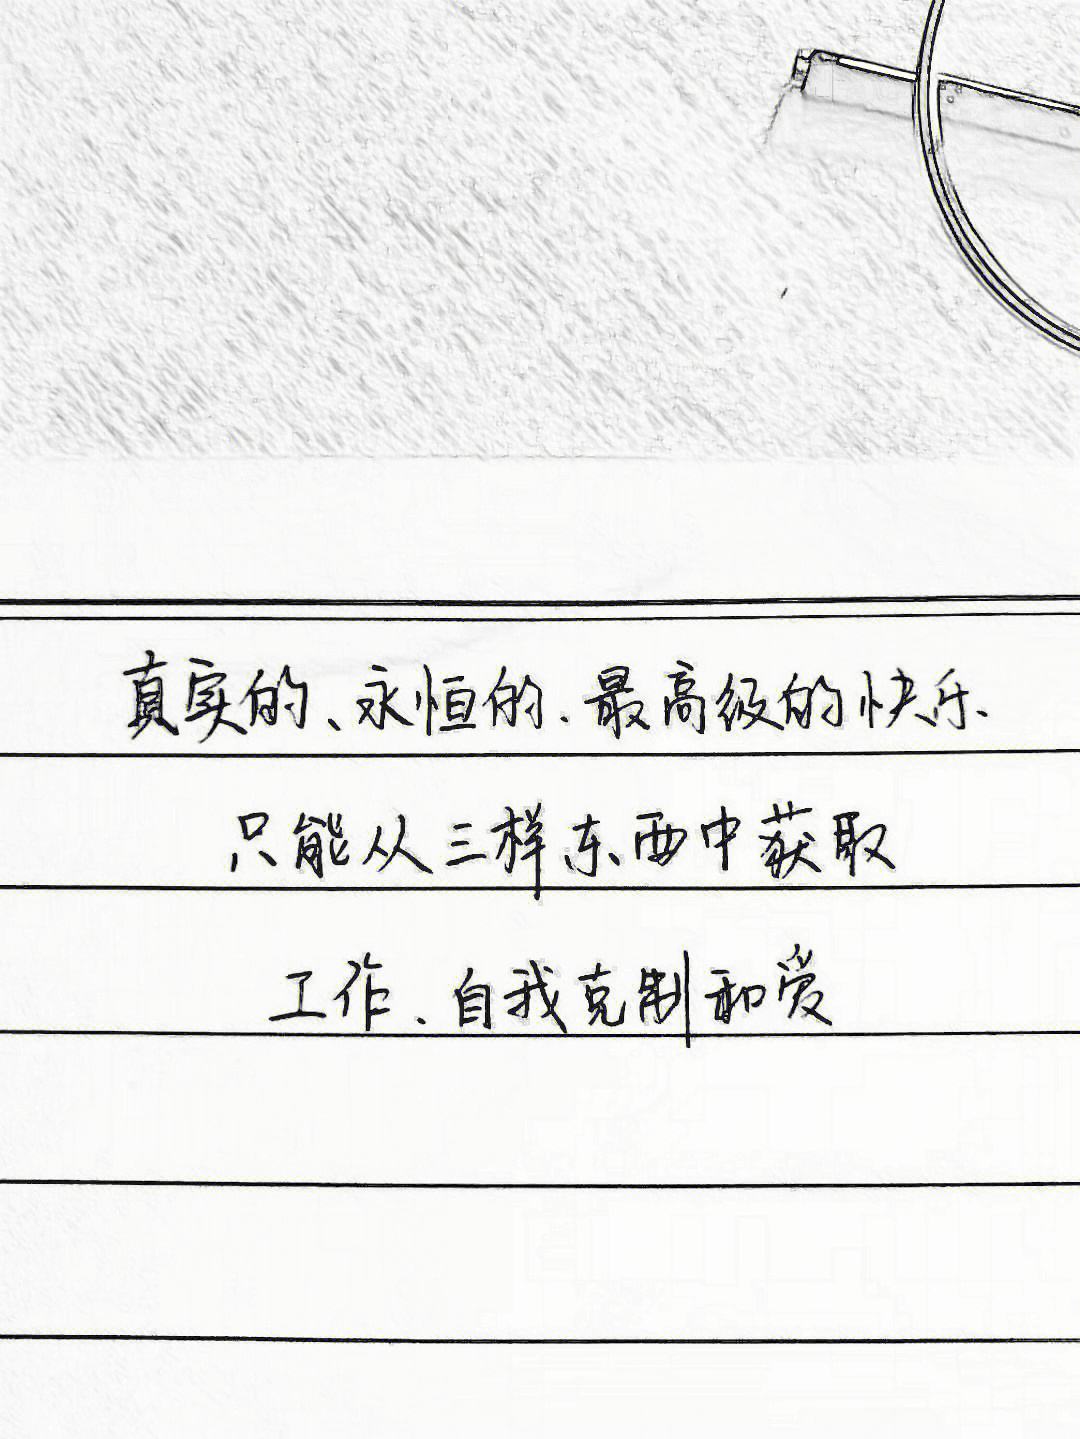 真实的、永恒的、最高级的快乐、
只能从三样东西中获取
工作、自我克制和爱